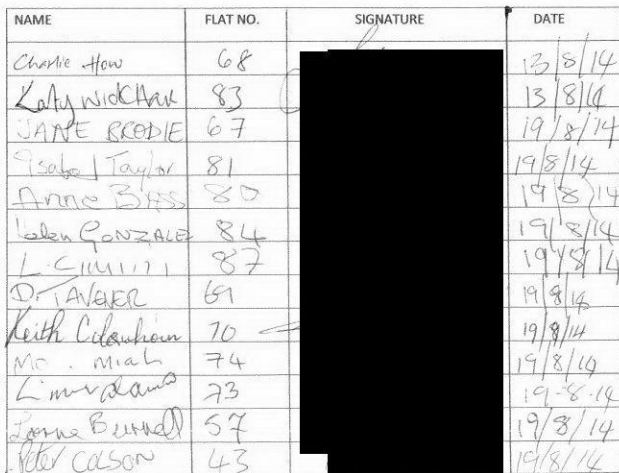 NAME FLAT NO. SIGNATURE DATE
Charlie How 68 13/8/14
Katy 83 13/8/14
JANE BRODIE 67 19/8/14
Isabel Taylor 81 19/8/14
Anne BASS 80 19/8/14
Helen GONZALEZ 84 19/8/14
L. 87 19/8/14
D. TAVENER 69 19/8/14
Keith Colquhoun 70 19/8/14
Mo. Miah 74 19/8/14
73 19-8-14
Burnell 57 19/8/14
Peter COLSON 43 19/8/14